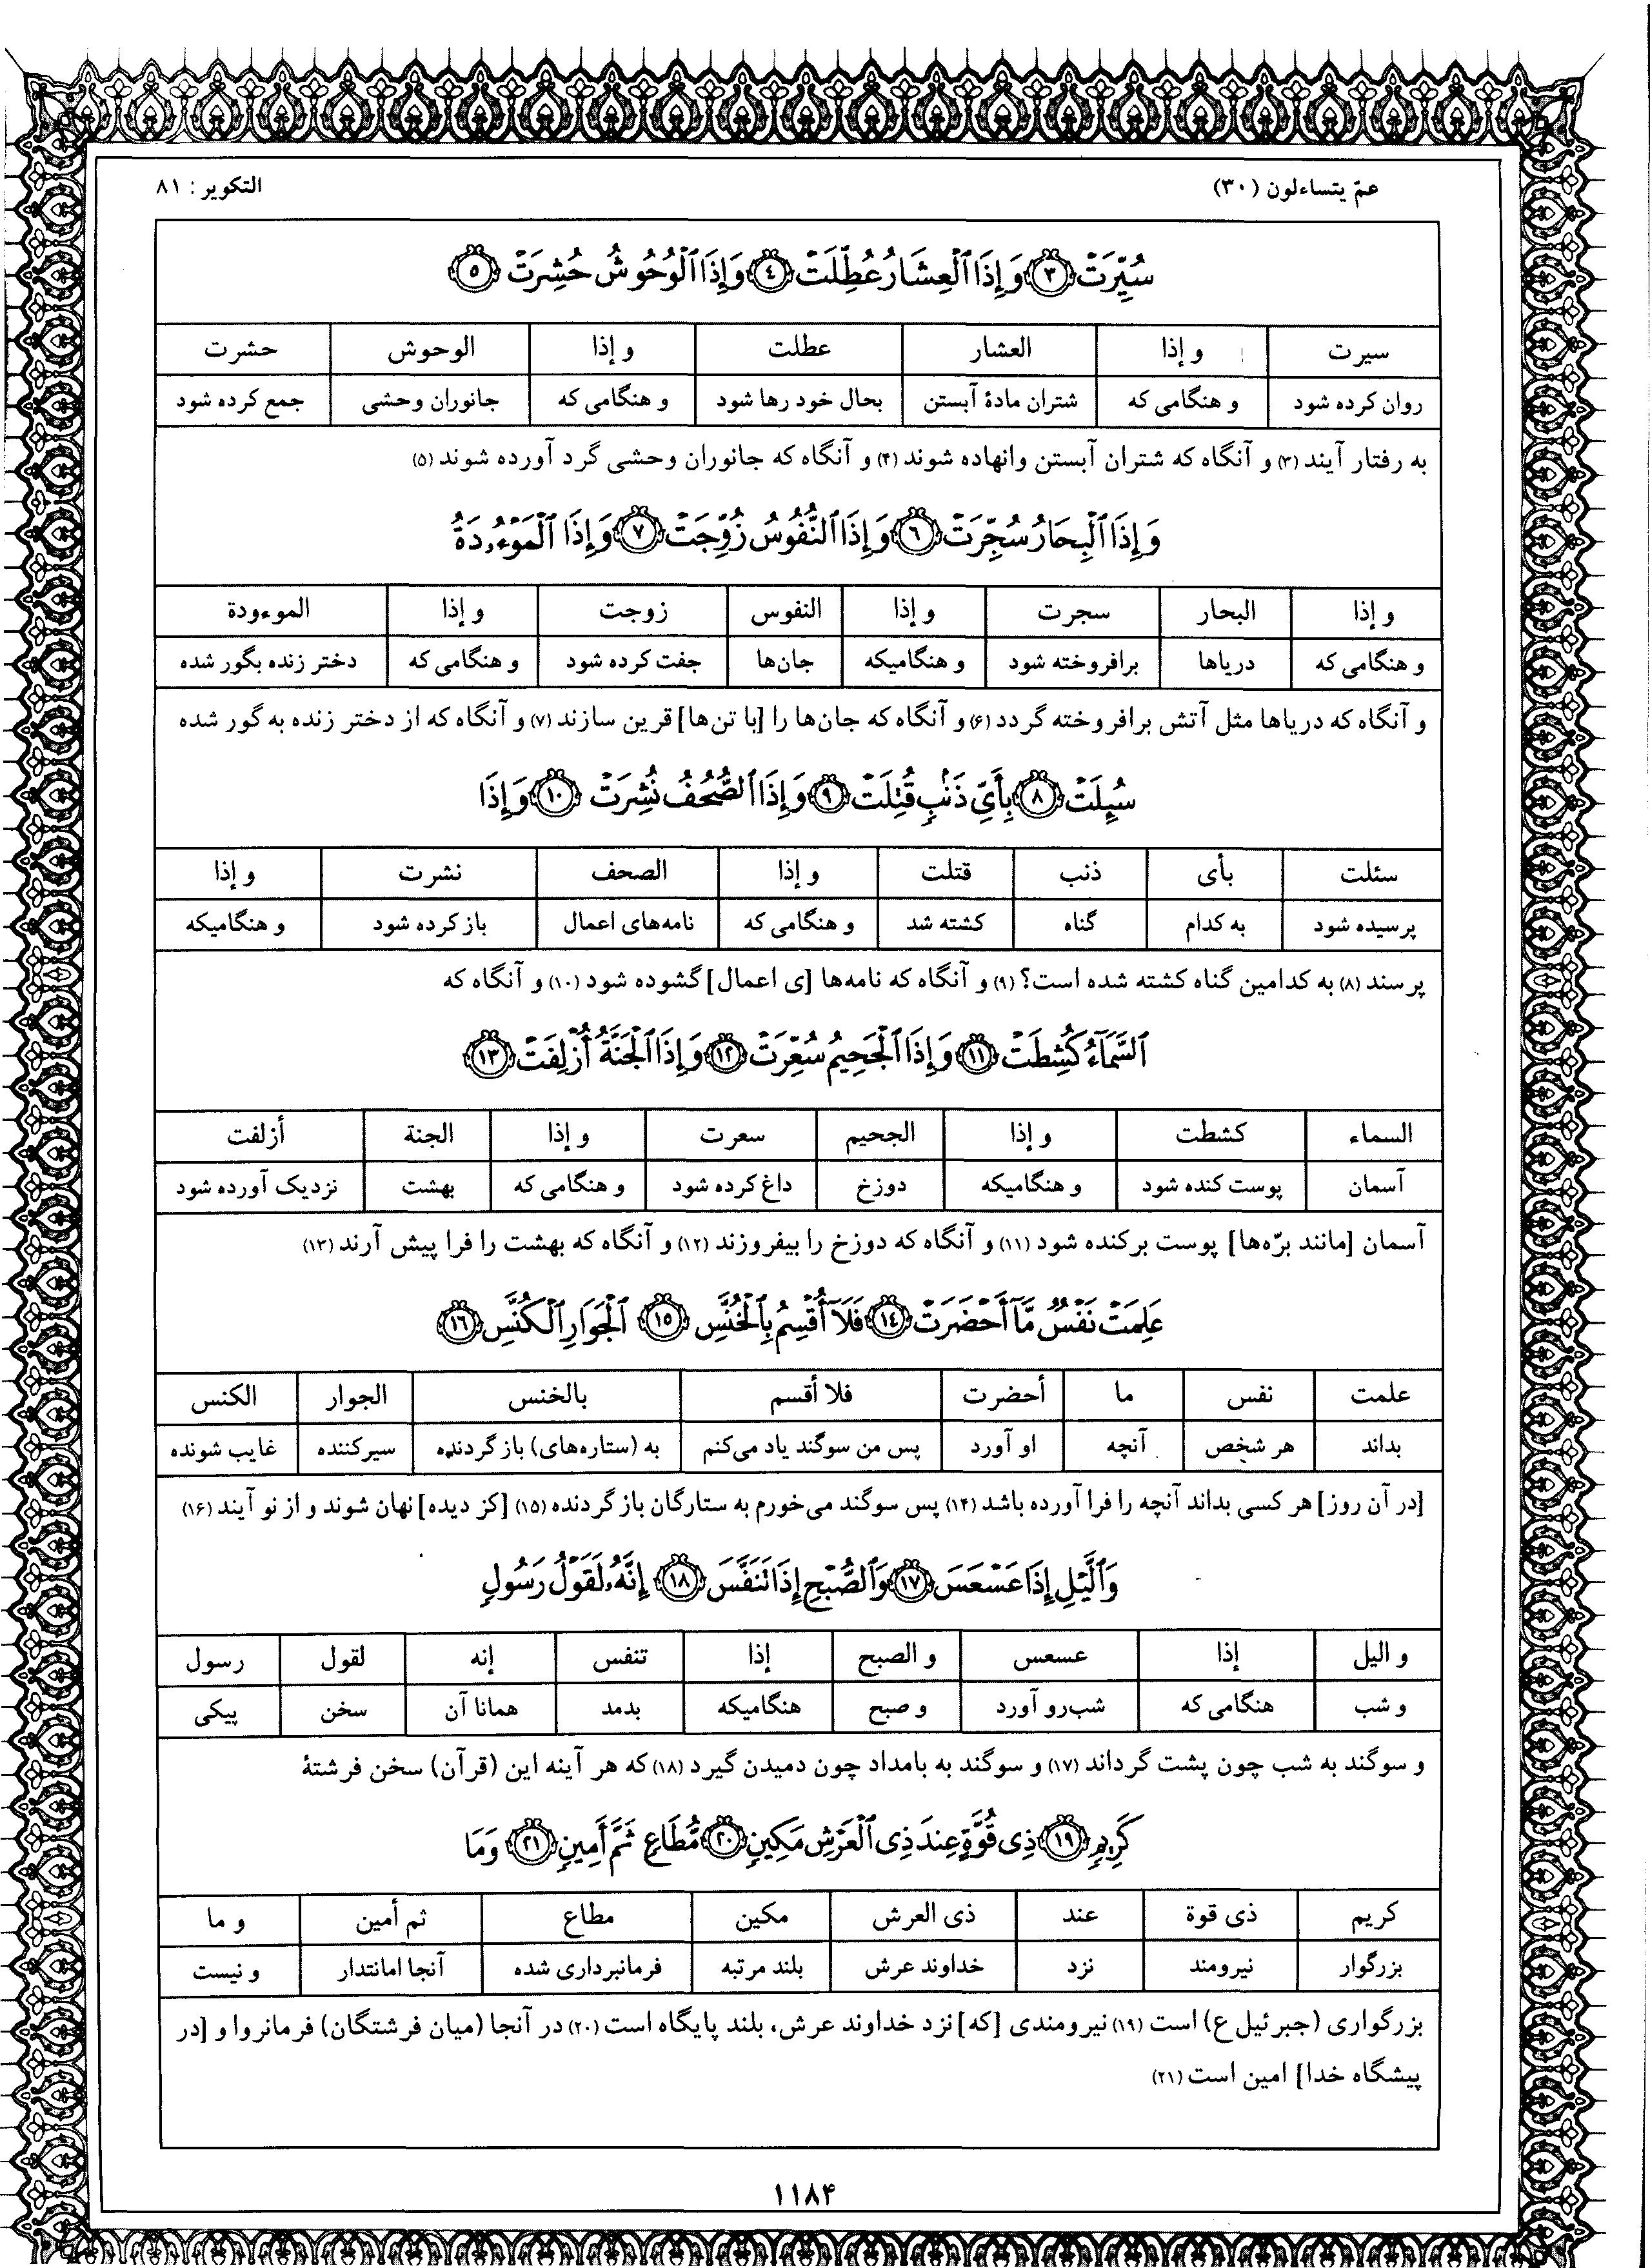 عمّ يتساءلون (٣٠) التكوير: ٨١
سُيِّرَتۡ ﴿٣﴾ وَإِذَا ٱلۡعِشَارُ عُطِّلَتۡ ﴿٤﴾ وَإِذَا ٱلۡوُحُوشُ حُشِرَتۡ ﴿٥﴾
سيرت و إذا العشار عطلت و إذا الوحوش حشرت
روان کرده شود و هنگامی که شتران مادهٔ آبستن بحال خود رها شود و هنگامی که جانوران وحشی جمع کرده شود
به رفتار آیند (۳) و آنگاه که شتران آبستن وانهاده شوند (۴) و آنگاه که جانوران وحشی گرد آورده شوند (۵)
وَإِذَا ٱلۡبِحَارُ سُجِّرَتۡ ﴿٦﴾ وَإِذَا ٱلنُّفُوسُ زُوِّجَتۡ ﴿٧﴾ وَإِذَا ٱلۡمَوۡءُۥدَةُ
و إذا البحار سجرت و إذا النفوس زوجت و إذا الموءودة
و هنگامی که دریاها برافروخته شود و هنگامیکه جان‌ها جفت کرده شود و هنگامی که دختر زنده بگور شده
و آنگاه که دریاها مثل آتش برافروخته گردد (۶) و آنگاه که جان‌ها را [با تن‌ها] قرین سازند (۷) و آنگاه که از دختر زنده به گور شده
سُئِلَتۡ ﴿٨﴾ بِأَيِّ ذَنۢبٖ قُتِلَتۡ ﴿٩﴾ وَإِذَا ٱلصُّحُفُ نُشِرَتۡ ﴿١٠﴾ وَإِذَا
سئلت بأى ذنب قتلت و إذا الصحف نشرت و إذا
پرسیده شود به کدام گناه کشته شد و هنگامی که نامه‌های اعمال باز کرده شود و هنگامیکه
پرسند (۸) به کدامین گناه کشته شده است؟ (۹) و آنگاه که نامه‌ها [ی اعمال] گشوده شود (۱۰) و آنگاه که
ٱلسَّمَآءُ كُشِطَتۡ ﴿١١﴾ وَإِذَا ٱلۡجَحِيمُ سُعِّرَتۡ ﴿١٢﴾ وَإِذَا ٱلۡجَنَّةُ أُزۡلِفَتۡ ﴿١٣﴾
السماء كشطت و إذا الجحيم سعرت و إذا الجنة أزلفت
آسمان پوست کنده شود و هنگامیکه دوزخ داغ کرده شود و هنگامی که بهشت نزدیک آورده شود
آسمان [مانند برّه‌ها] پوست برکنده شود (۱۱) و آنگاه که دوزخ را بیفروزند (۱۲) و آنگاه که بهشت را فرا پیش آرند (۱۳)
عَلِمَتۡ نَفۡسٞ مَّآ أَحۡضَرَتۡ ﴿١٤﴾ فَلَآ أُقۡسِمُ بِٱلۡخُنَّسِ ﴿١٥﴾ ٱلۡجَوَارِ ٱلۡكُنَّسِ ﴿١٦﴾
علمت نفس ما أحضرت فلا أقسم بالخنس الجوار الكنس
بداند هر شخص آنچه او آورد پس من سوگند یاد می‌کنم به (ستاره‌های) باز گردنده سیرکننده غایب شونده
[در آن روز] هر کسی بداند آنچه را فرا آورده باشد (۱۴) پس سوگند می‌خورم به ستارگان بازگردنده (۱۵) [کز دیده] نهان شوند و از نو آیند (۱۶)
وَٱلَّيۡلِ إِذَا عَسۡعَسَ ﴿١٧﴾ وَٱلصُّبۡحِ إِذَا تَنَفَّسَ ﴿١٨﴾ إِنَّهُۥ لَقَوۡلُ رَسُولٖ
و اليل إذا عسعس و الصبح إذا تنفس إنه لقول رسول
و شب هنگامی که شب‌رو آورد و صبح هنگامیکه بدمد همانا آن سخن پیکی
و سوگند به شب چون پشت گرداند (۱۷) و سوگند به بامداد چون دمیدن گیرد (۱۸) که هر آینه این (قرآن) سخن فرشتهٔ
كَرِيمٖ ﴿١٩﴾ ذِي قُوَّةٍ عِندَ ذِي ٱلۡعَرۡشِ مَكِينٖ ﴿٢٠﴾ مُّطَاعٖ ثَمَّ أَمِينٖ ﴿٢١﴾ وَمَا
كريم ذى قوة عند ذى العرش مكين مطاع ثم أمين و ما
بزرگوار نیرومند نزد خداوند عرش بلند مرتبه فرمانبرداری شده آنجا امانتدار و نیست
بزرگواری (جبرئیل ع) است (۱۹) نیرومندی [که] نزد خداوند عرش، بلند پایگاه است (۲۰) در آنجا (میان فرشتگان) فرمانروا و [در
پیشگاه خدا] امین است (۲۱)
۱۱۸۴